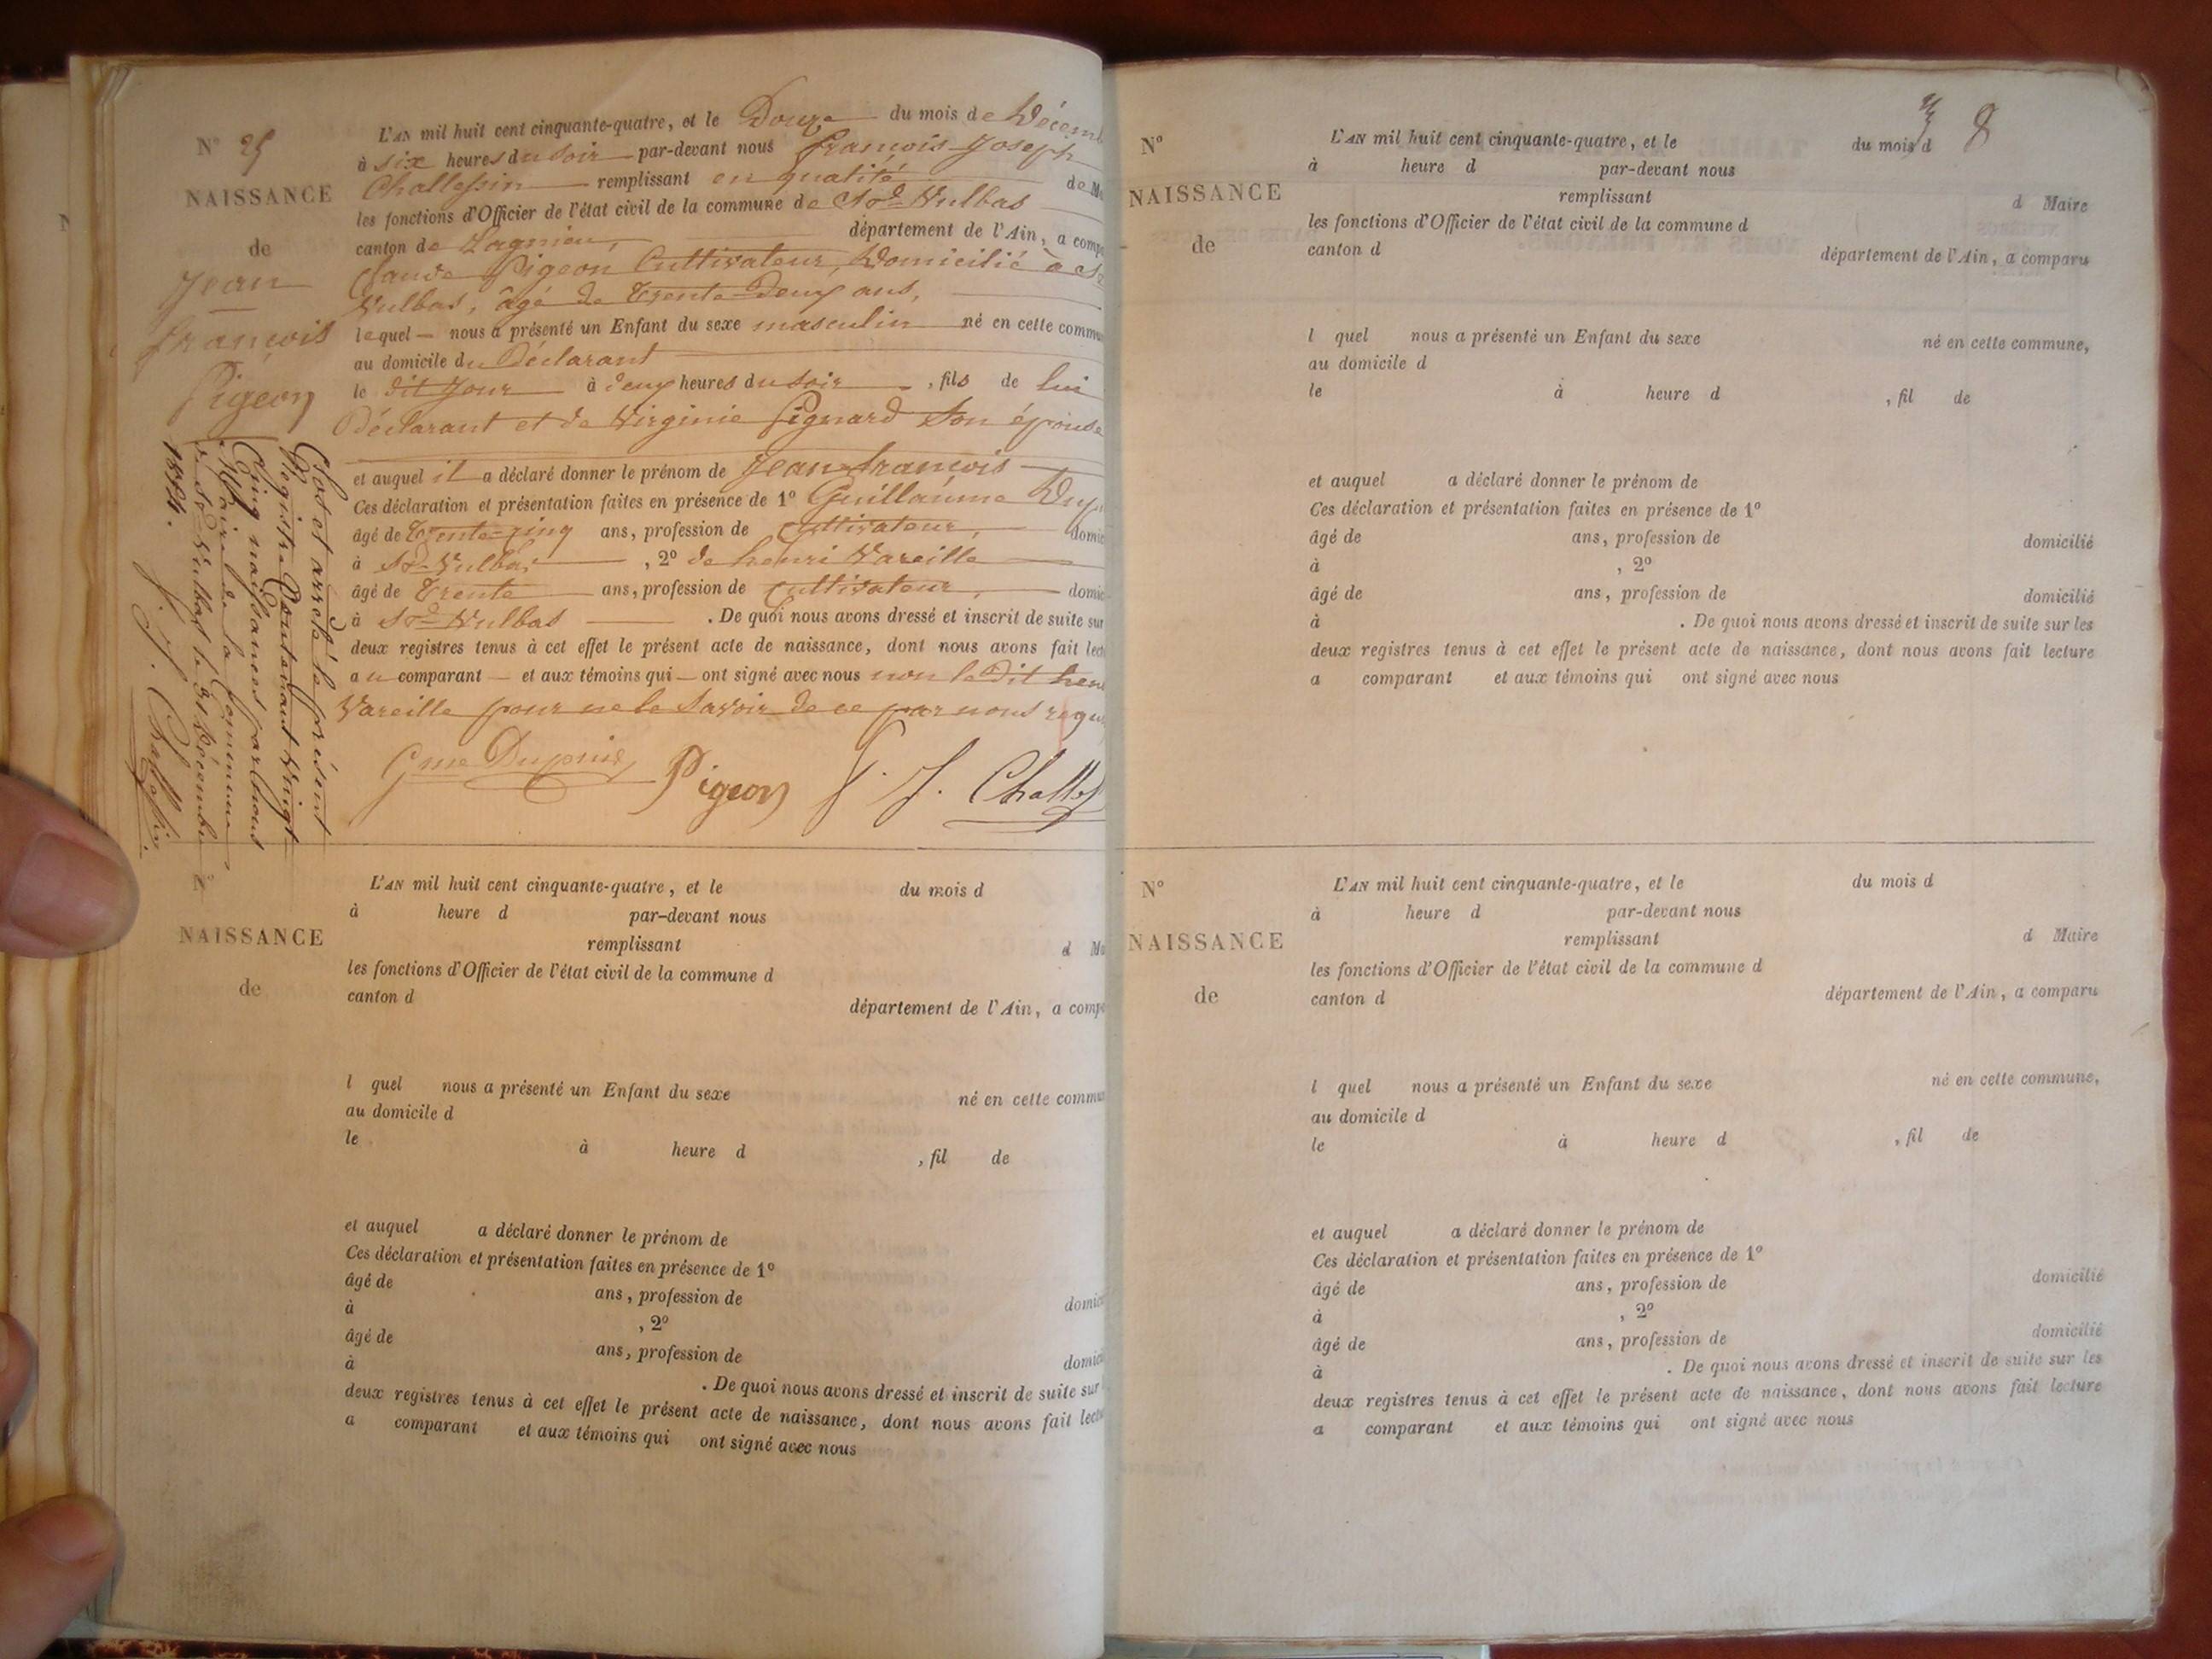 N° 25
NAISSANCE
de
Jean
François
Pigeon
L'AN mil huit cent cinquante-quatre, et le Douze du mois de Décem
à six heures du soir par-devant nous François Joseph
Challessin remplissant en qualité de M
les fonctions d'Officier de l'état civil de la commune de St Vulbas
canton de Lagnieu, département de l'Ain, a comp
Claude Pigeon Cultivateur, Domicilié à St
Vulbas, âgé de trente-deux ans,
lequel nous a présenté un Enfant du sexe masculin né en cette commu
au domicile du Déclarant
le dit jour à deux heures du soir, fils de lui
Déclarant et de Virginie Pignard Son épouse
et auquel il a déclaré donner le prénom de Jean François
Ces déclaration et présentation faites en présence de 1° Guillaume Dup
âgé de trente-cinq ans, profession de cultivateur, domic
à St Vulbas, 2° de henri Vareille
âgé de trente ans, profession de cultivateur, domic
à St Vulbas. De quoi nous avons dressé et inscrit de suite sur
deux registres tenus à cet effet le présent acte de naissance, dont nous avons fait lect
au comparant et aux témoins qui ont signé avec nous non le dit hen
Vareille pour ne le Savoir de ce par nous requ
Gme Dupuis Pigeon f. J. Challes
Clos et arrêté le présent
Registre Contenant Vingt
Cinq naissances par nous
Maire de la Commune
de St Vulbas le 31 Décembre
1854.
f. J. Challessin
N°
NAISSANCE
de
L'AN mil huit cent cinquante-quatre, et le du mois d
à heure d par-devant nous
remplissant d Ma
les fonctions d'Officier de l'état civil de la commune d
canton d département de l'Ain, a comp
l quel nous a présenté un Enfant du sexe né en cette commu
au domicile d
le à heure d , fil de
et auquel a déclaré donner le prénom de
Ces déclaration et présentation faites en présence de 1°
âgé de ans, profession de domic
à , 2°
âgé de ans, profession de domic
à . De quoi nous avons dressé et inscrit de suite sur
deux registres tenus à cet effet le présent acte de naissance, dont nous avons fait lect
a comparant et aux témoins qui ont signé avec nous
8
N°
NAISSANCE
de
L'AN mil huit cent cinquante-quatre, et le du mois d
à heure d par-devant nous
remplissant d Maire
les fonctions d'Officier de l'état civil de la commune d
canton d département de l'Ain, a comparu
l quel nous a présenté un Enfant du sexe né en cette commune,
au domicile d
le à heure d , fil de
et auquel a déclaré donner le prénom de
Ces déclaration et présentation faites en présence de 1°
âgé de ans, profession de domicilié
à , 2°
âgé de ans, profession de domicilié
à . De quoi nous avons dressé et inscrit de suite sur les
deux registres tenus à cet effet le présent acte de naissance, dont nous avons fait lecture
a comparant et aux témoins qui ont signé avec nous
N°
NAISSANCE
de
L'AN mil huit cent cinquante-quatre, et le du mois d
à heure d par-devant nous
remplissant d Maire
les fonctions d'Officier de l'état civil de la commune d
canton d département de l'Ain, a comparu
l quel nous a présenté un Enfant du sexe né en cette commune,
au domicile d
le à heure d , fil de
et auquel a déclaré donner le prénom de
Ces déclaration et présentation faites en présence de 1°
âgé de ans, profession de domicilié
à , 2°
âgé de ans, profession de domicilié
à . De quoi nous avons dressé et inscrit de suite sur les
deux registres tenus à cet effet le présent acte de naissance, dont nous avons fait lecture
a comparant et aux témoins qui ont signé avec nous